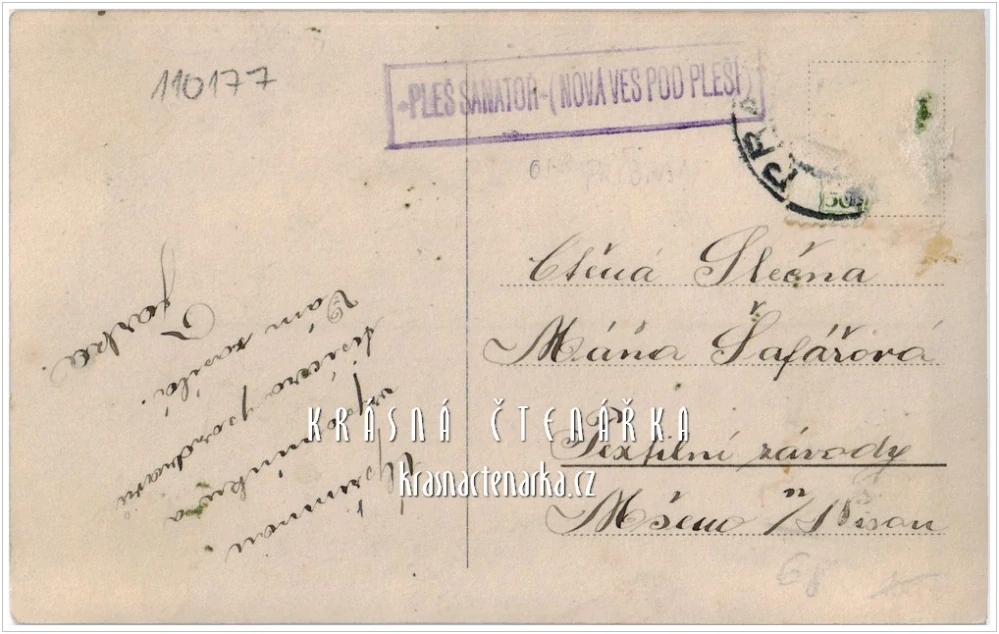 110177
PLEŠ SANATOŘ-(NOVÁ VES POD PLEŠÍ)
PR
50
Ctěná Slečna
Máňa Šafářová
Textilní závody
Mšeno n/Nisou
Upřímnou
vzpomínku a
tisícero pozdravů
Vám zasílá
Jarka.
KRÁSNÁ ČTENÁŘKA
krasnactenarka.cz